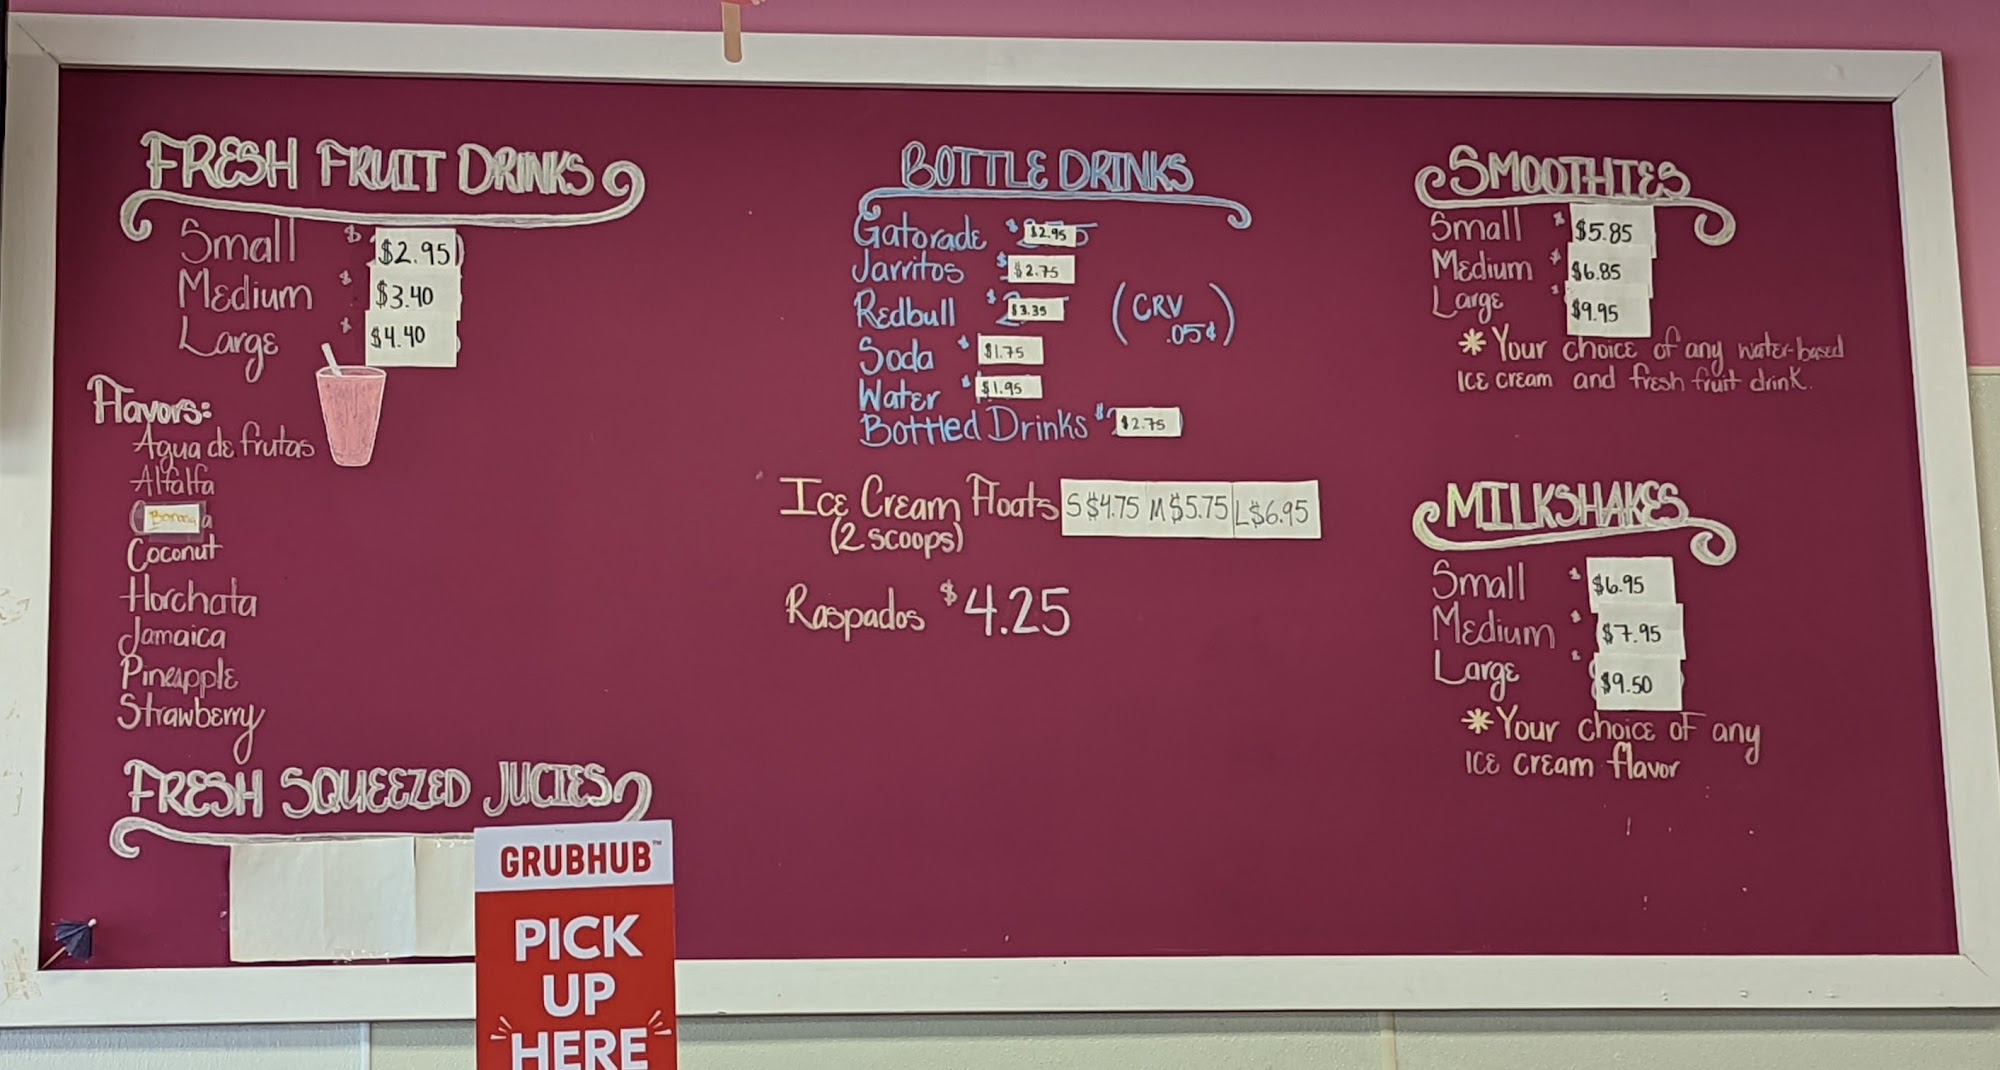 FRESH FRUIT DRINKS
Small $ $2.95
Medium $ $3.40
Large $ $4.40
Flavors:
Agua de frutas
Alfalfa
Banana
Coconut
Horchata
Jamaica
Pineapple
Strawberry
FRESH SQUEEZED JUCIES
GRUBHUB™
PICK
UP
HERE
BOTTLE DRINKS
Gatorade $ $2.95
Jarritos $ $2.75
Redbull $ $3.35
(CRV
.05¢)
Soda $ $1.75
Water $ $1.95
Bottled Drinks $ $2.75
Ice Cream Floats S $4.75 M $5.75 L $6.95
(2 scoops)
Raspados $4.25
SMOOTHIES
Small $ $5.85
Medium $ $6.85
Large $ $9.95
* Your choice of any water-based
ice cream and fresh fruit drink.
MILKSHAKES
Small $ $6.95
Medium $ $7.95
Large $ $9.50
* Your choice of any
ice cream flavor